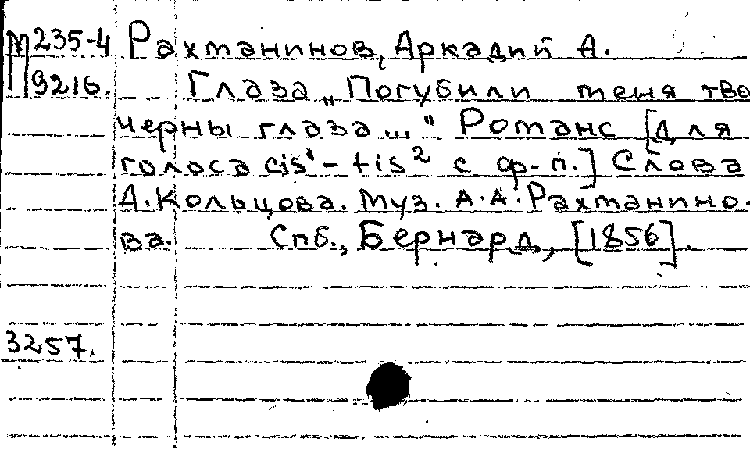 М 235-4 Рахманинов, Аркадий А.
9216. Глаза „Погубили меня тво
черны глаза..." Романс [для
голоса cis¹-fis² с ф-п.] Слова
А.Кольцова. Муз. А.А.Рахманино-
ва. Спб., Бернард, [1856].
3257.